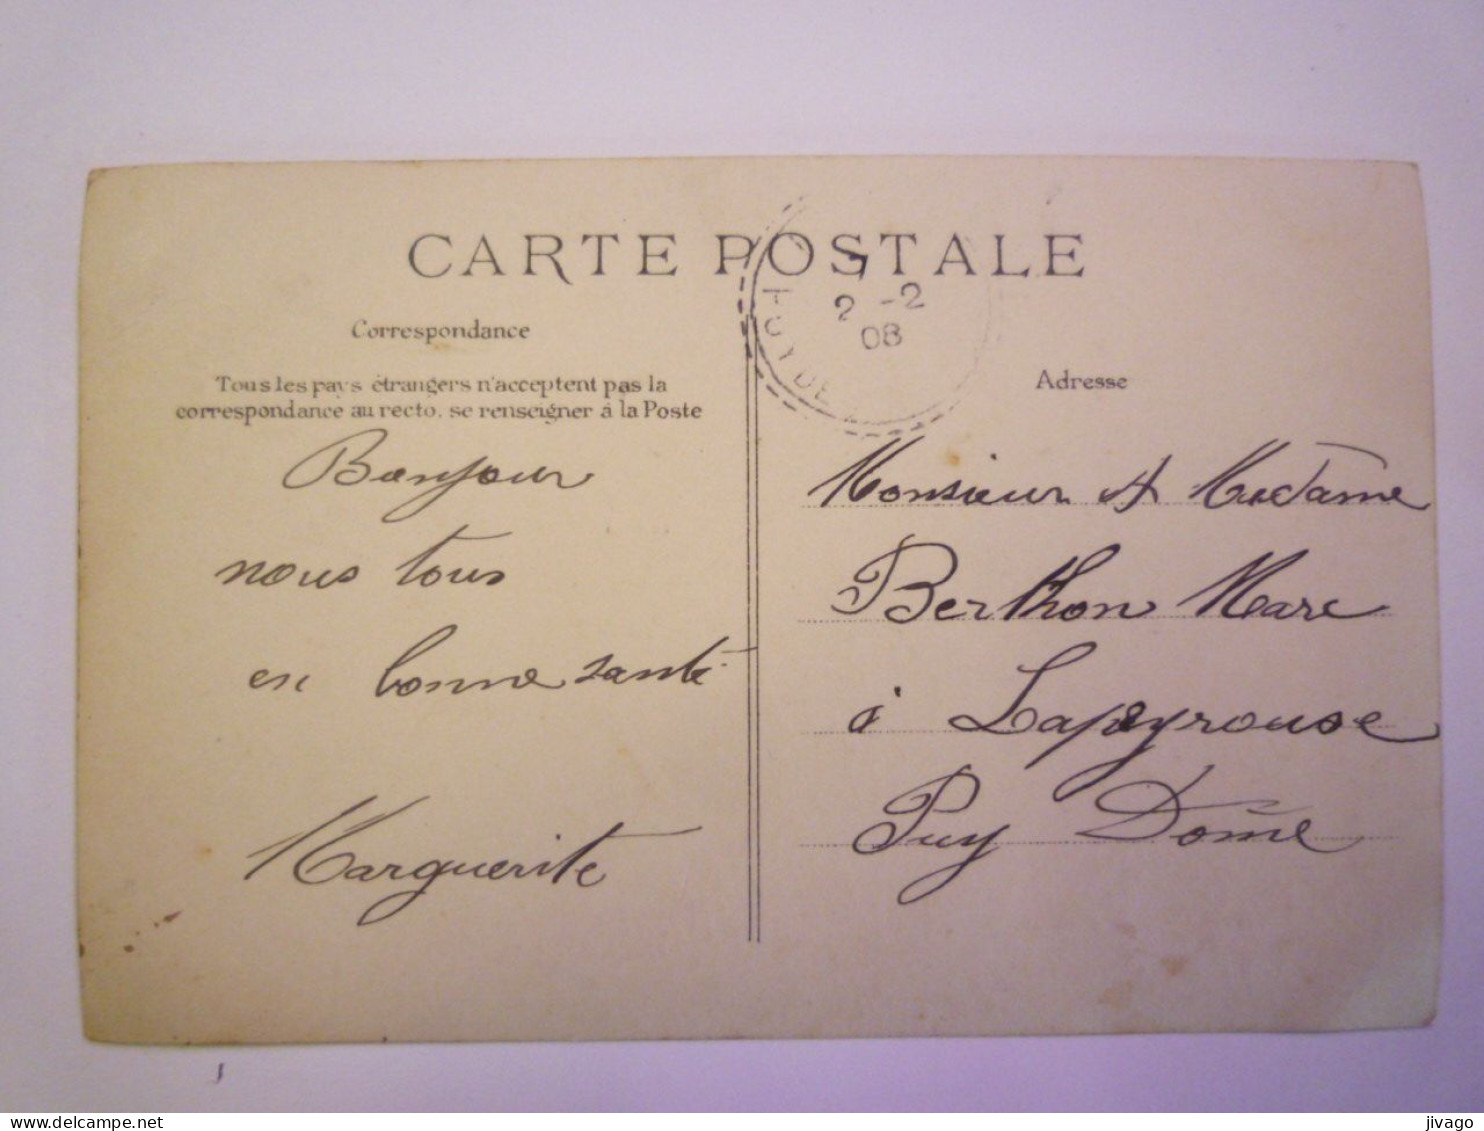 CARTE POSTALE
Correspondance
Tous les pays étrangers n'acceptent pas la
correspondance au recto, se renseigner à la Poste
Bonjour
nous tous
en bonne santé
Marguerite
2 -2
08
PUY DE
Adresse
Monsieur et Madame
Berthon Marc
à Lapeyrouse
Puy Dôme
delcampe.net
jivago